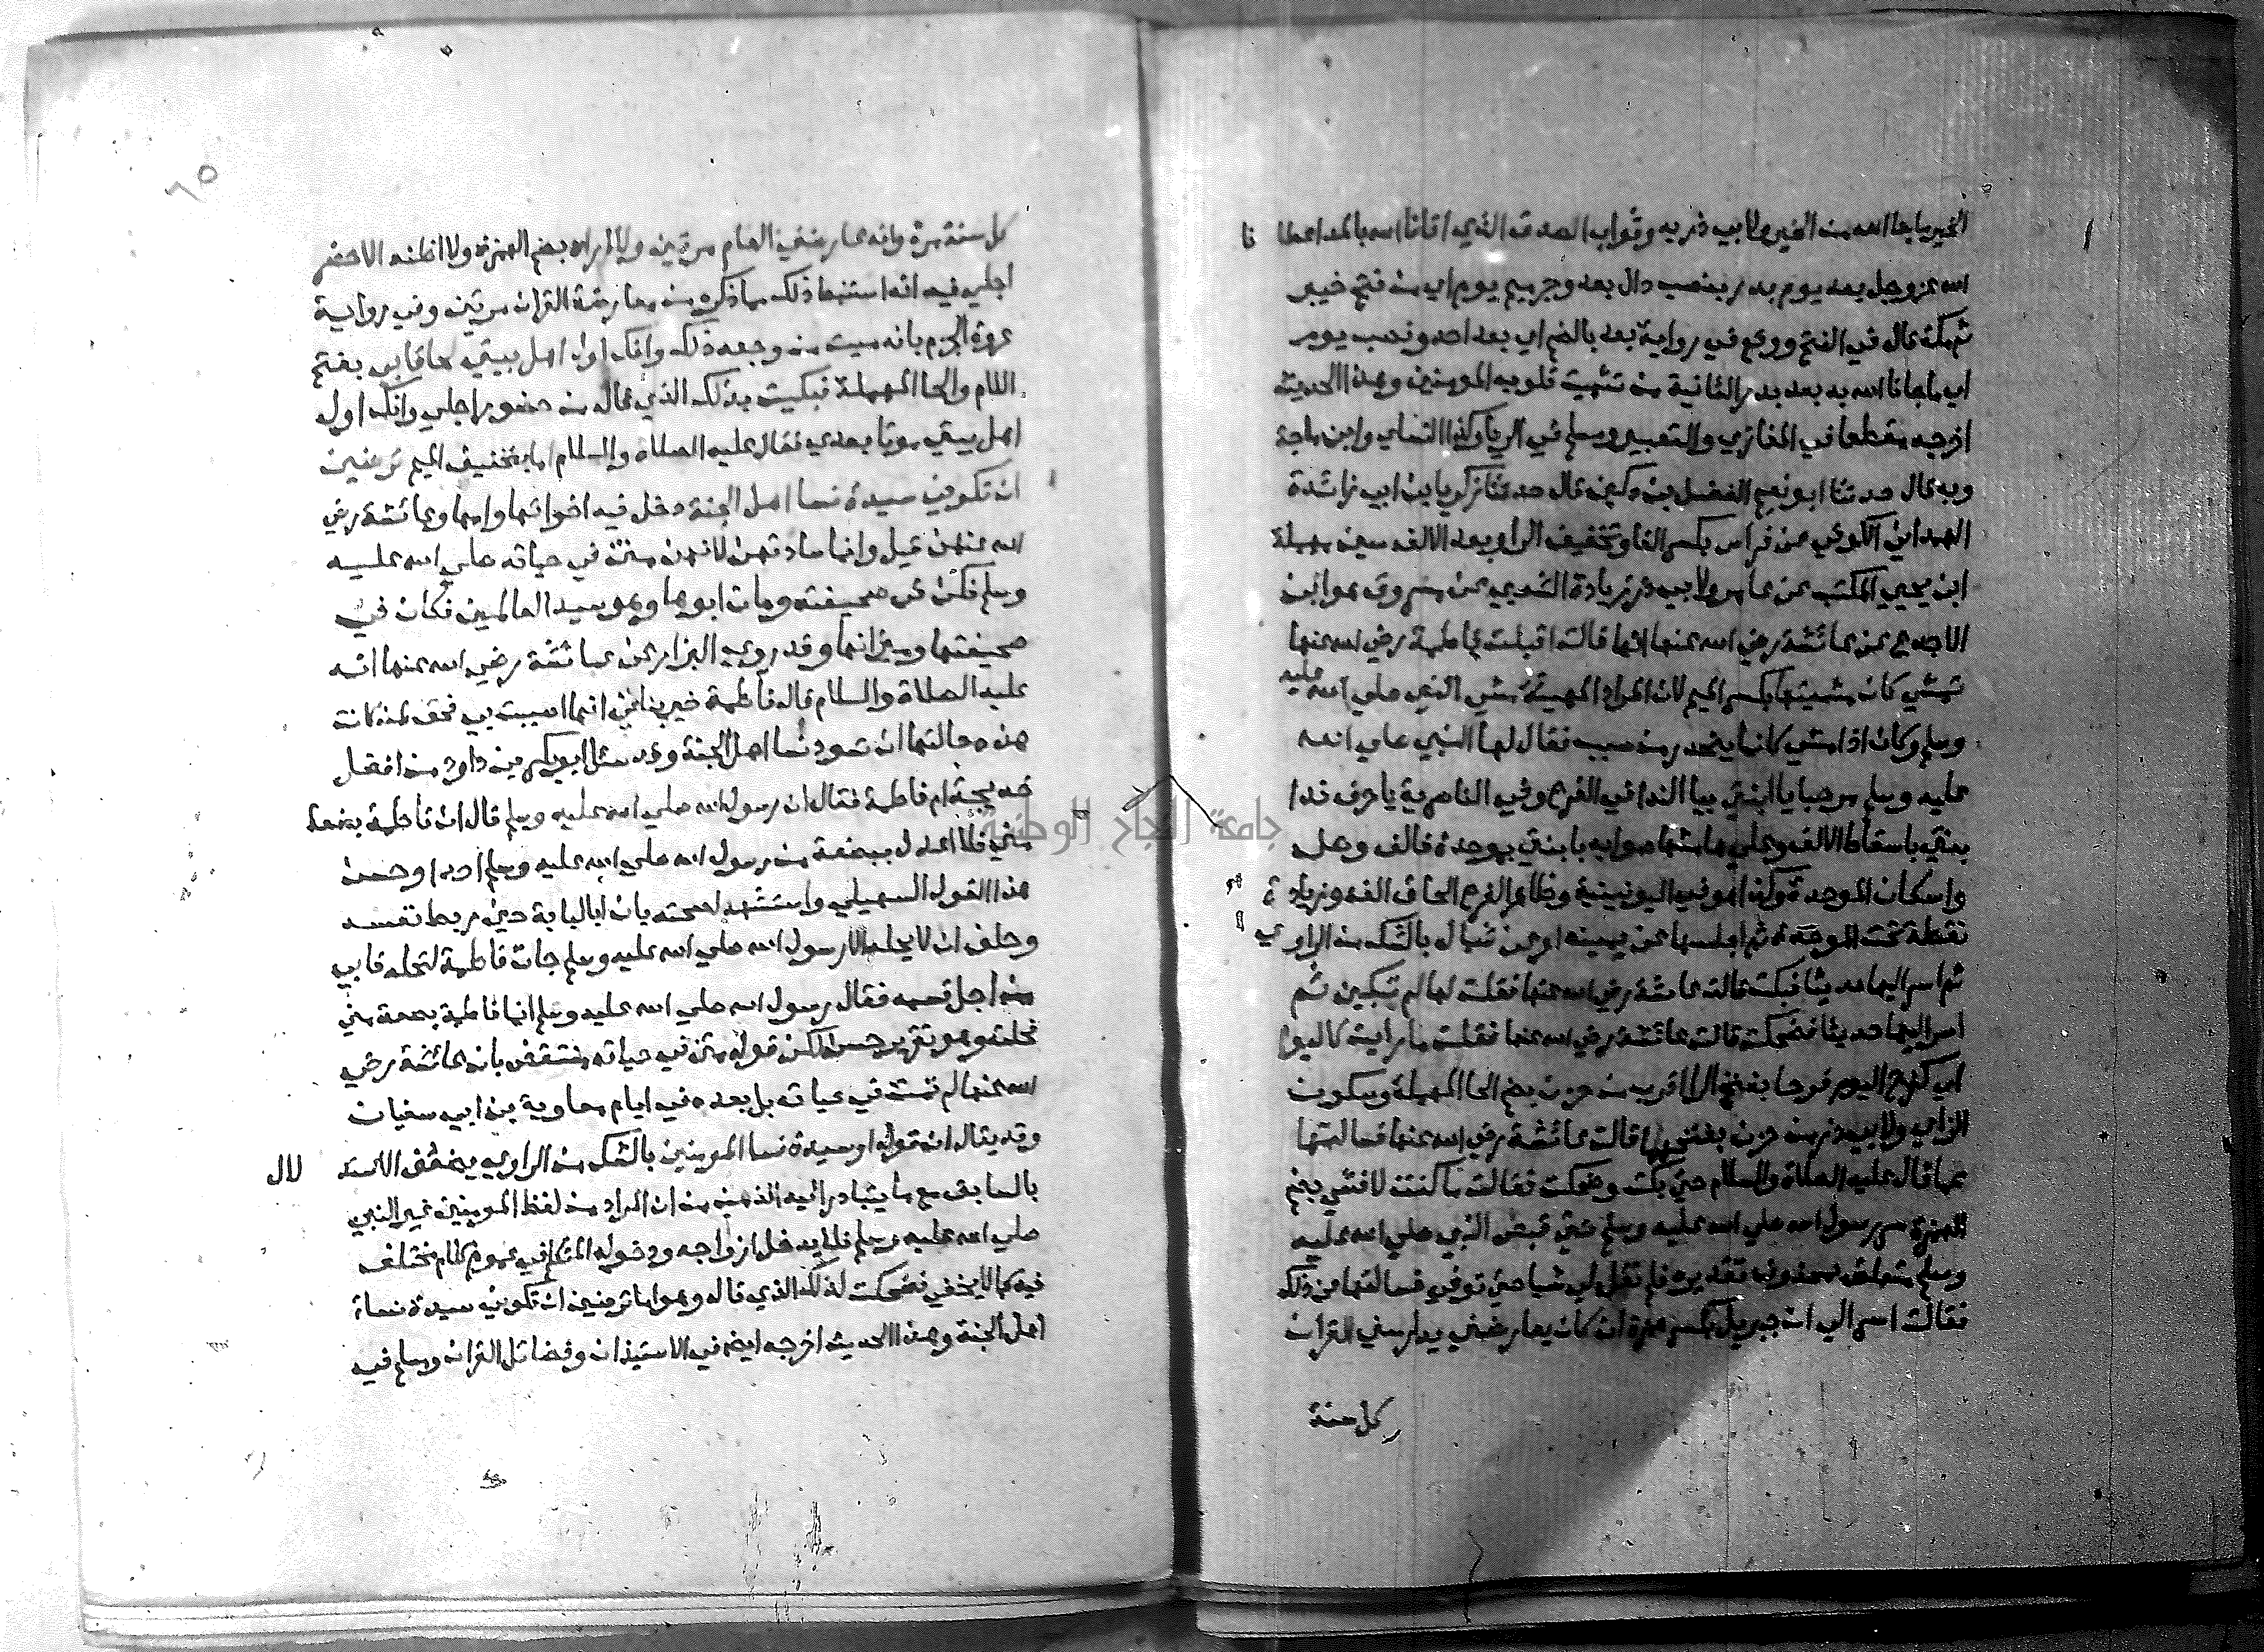 الخير ما جا الله من الخير ولابي ذر به وثواب الصدق الذي اتانا الله بالمد اعطانا
الله عز وجل بعد يوم بدر بنصب دال بعد وجر ميم يوم اي من فتح خيبر
ثم مكة قال في الفتح ووقع في رواية بعد بالضم اي بعد احد ونصب يوم
اي ما جانا الله به بعد بدر الثانية من تثبيت قلوب المومنين وهذا الحديث
اخرجه مقطعا في المغازي والتعبير ومسلم في الرويا وكذا النساي وابن ماجة
وبه قال حدثنا ابو نعيم الفضل بن دكين قال حدثنا زكريا بن ابي زائدة
الهمداني الكوفي عن فراس بكسر الفا وتخفيف الرا وبعد الالف سين مهملة
ابن يحيي المكتب عن عامر ولابي ذر زيادة الشعبي عن مسروق هو ابن
الاجدع عن عائشة رضي الله عنها انها قالت اقبلت فاطمة رضي الله عنها
تمشي كان مشيتها بكسر الميم لان المراد الهيئة مشي النبي صلي الله عليه
وسلم وكان اذا مشي كانما ينحدر من صبب فقال لها النبي صلي الله
عليه وسلم مرحبا يا ابنتي بيا الندا في الفرع وفي الناصرية يا حرف ندا
بنتي باسقاط الالف وعلي هامشها صوابه بابنتي بموحدة فالف وصل
واسكان الموحدة وكذا هو في اليونينية وظاهر الفرع الحاق الف وزيادة
نقطة تحت الموحدة ثم اجلسها عن يمينه او عن شماله بالشك من الراوي
ثم اسر اليها حديثا فبكت قالت عائشة رضي الله عنها فقلت لها لم تبكين ثم
اسر اليها حديثا فضحكت قالت عائشة رضي الله عنها فقلت ما رايت كاليوم
اي كفرح اليوم فرحا بفتح الرا اقرب من حزن بضم الحا المهملة وسكون
الزاي ولابي ذر من حزن بفتحهما قالت عائشة رضي الله عنها فسالتها
عما قال عليه الصلاة والسلام حتي بكت وضحكت فقالت ما كنت لافشي بضم
الهمزة سر رسول الله صلي الله عليه وسلم حتي قبض النبي صلي الله عليه
وسلم متعلق بمحذوف تقديره فلم تقل لي شيا حتي توفي فسالتها عن ذلك
فقالت اسر الي ان جبريل بكسر همزة ان كان يعارضني يدارسني القران
كل سنة
٦٥
كل سنة مرة وانه عارضني العام مرتين ولا اراه بضم الهمزة ولا اظنه الا حضر
اجلي فيه انه استنبط ذلك مما ذكره من معارضة القران مرتين وفي رواية
عروة الجزم بانه ميت من وجعه ذلك وانك اول اهل بيتي لحاقا بي بفتح
اللام والحا المهملة فبكيت بذلك الذي قاله من حضور اجلي وانك اول
اهل بيتي موتا بعدي فقال عليه الصلاة والسلام اما بتخفيف الميم ترضين
ان تكوني سيدة نسا اهل الجنة دخل فيه اخواتها وامها وعائشة رضي
الله عنهن قيل وانما سادتهن لانهن متن في حياته صلي الله عليه
وسلم فكن في صحيفته ومات ابوها وهو سيد العالمين فكان في
صحيفتها وميزانها وقد روي البزار عن عائشة رضي الله عنها انه
عليه الصلاة والسلام قال فاطمة خير بناتي انها اصيبت بي فحق لمن كانت
هذه حالتها ان تسود نسا اهل الجنة وقد سئل ابو بكر بن داود من افضل
خديجة ام فاطمة فقال ان رسول الله صلي الله عليه وسلم قال ان فاطمة بضعة
مني فلا اعدل ببضعة من رسول الله صلي الله عليه وسلم احدا وحسن
هذا القول السهيلي واستشهد لصحته بان ابا لبابة حين ربط نفسه
وحلف ان لا يحله الا رسول الله صلي الله عليه وسلم جات فاطمة لتحله فابي
من اجل قسمه فقال رسول الله صلي الله عليه وسلم انما فاطمة بضعة مني
فحلته وهو تقرير حسن لكن قوله متن في حياته منتقض بان عائشة رضي
الله عنها لم تمت في حياته بل بعده في ايام معاوية بن ابي سفيان
وقد يقال ان قوله او سيدة نسا المومنين بالشك من الراوي يضعف الاستدلال
بالسابق مع ما يتبادر اليه الذهن من ان المراد من لفظ المومنين غير النبي
صلي الله عليه وسلم فلا يدخل ازواجه ودخول المتكلم في عموم كلامه مختلف
فيه كما لا يخفي فضحكت لذلك الذي قاله وهو اما ترضين ان تكوني سيدة نساء
اهل الجنة وهذا الحديث اخرجه ايضا في الاستيذان وفضائل القران ومسلم في
جامعة النجاح الوطنية